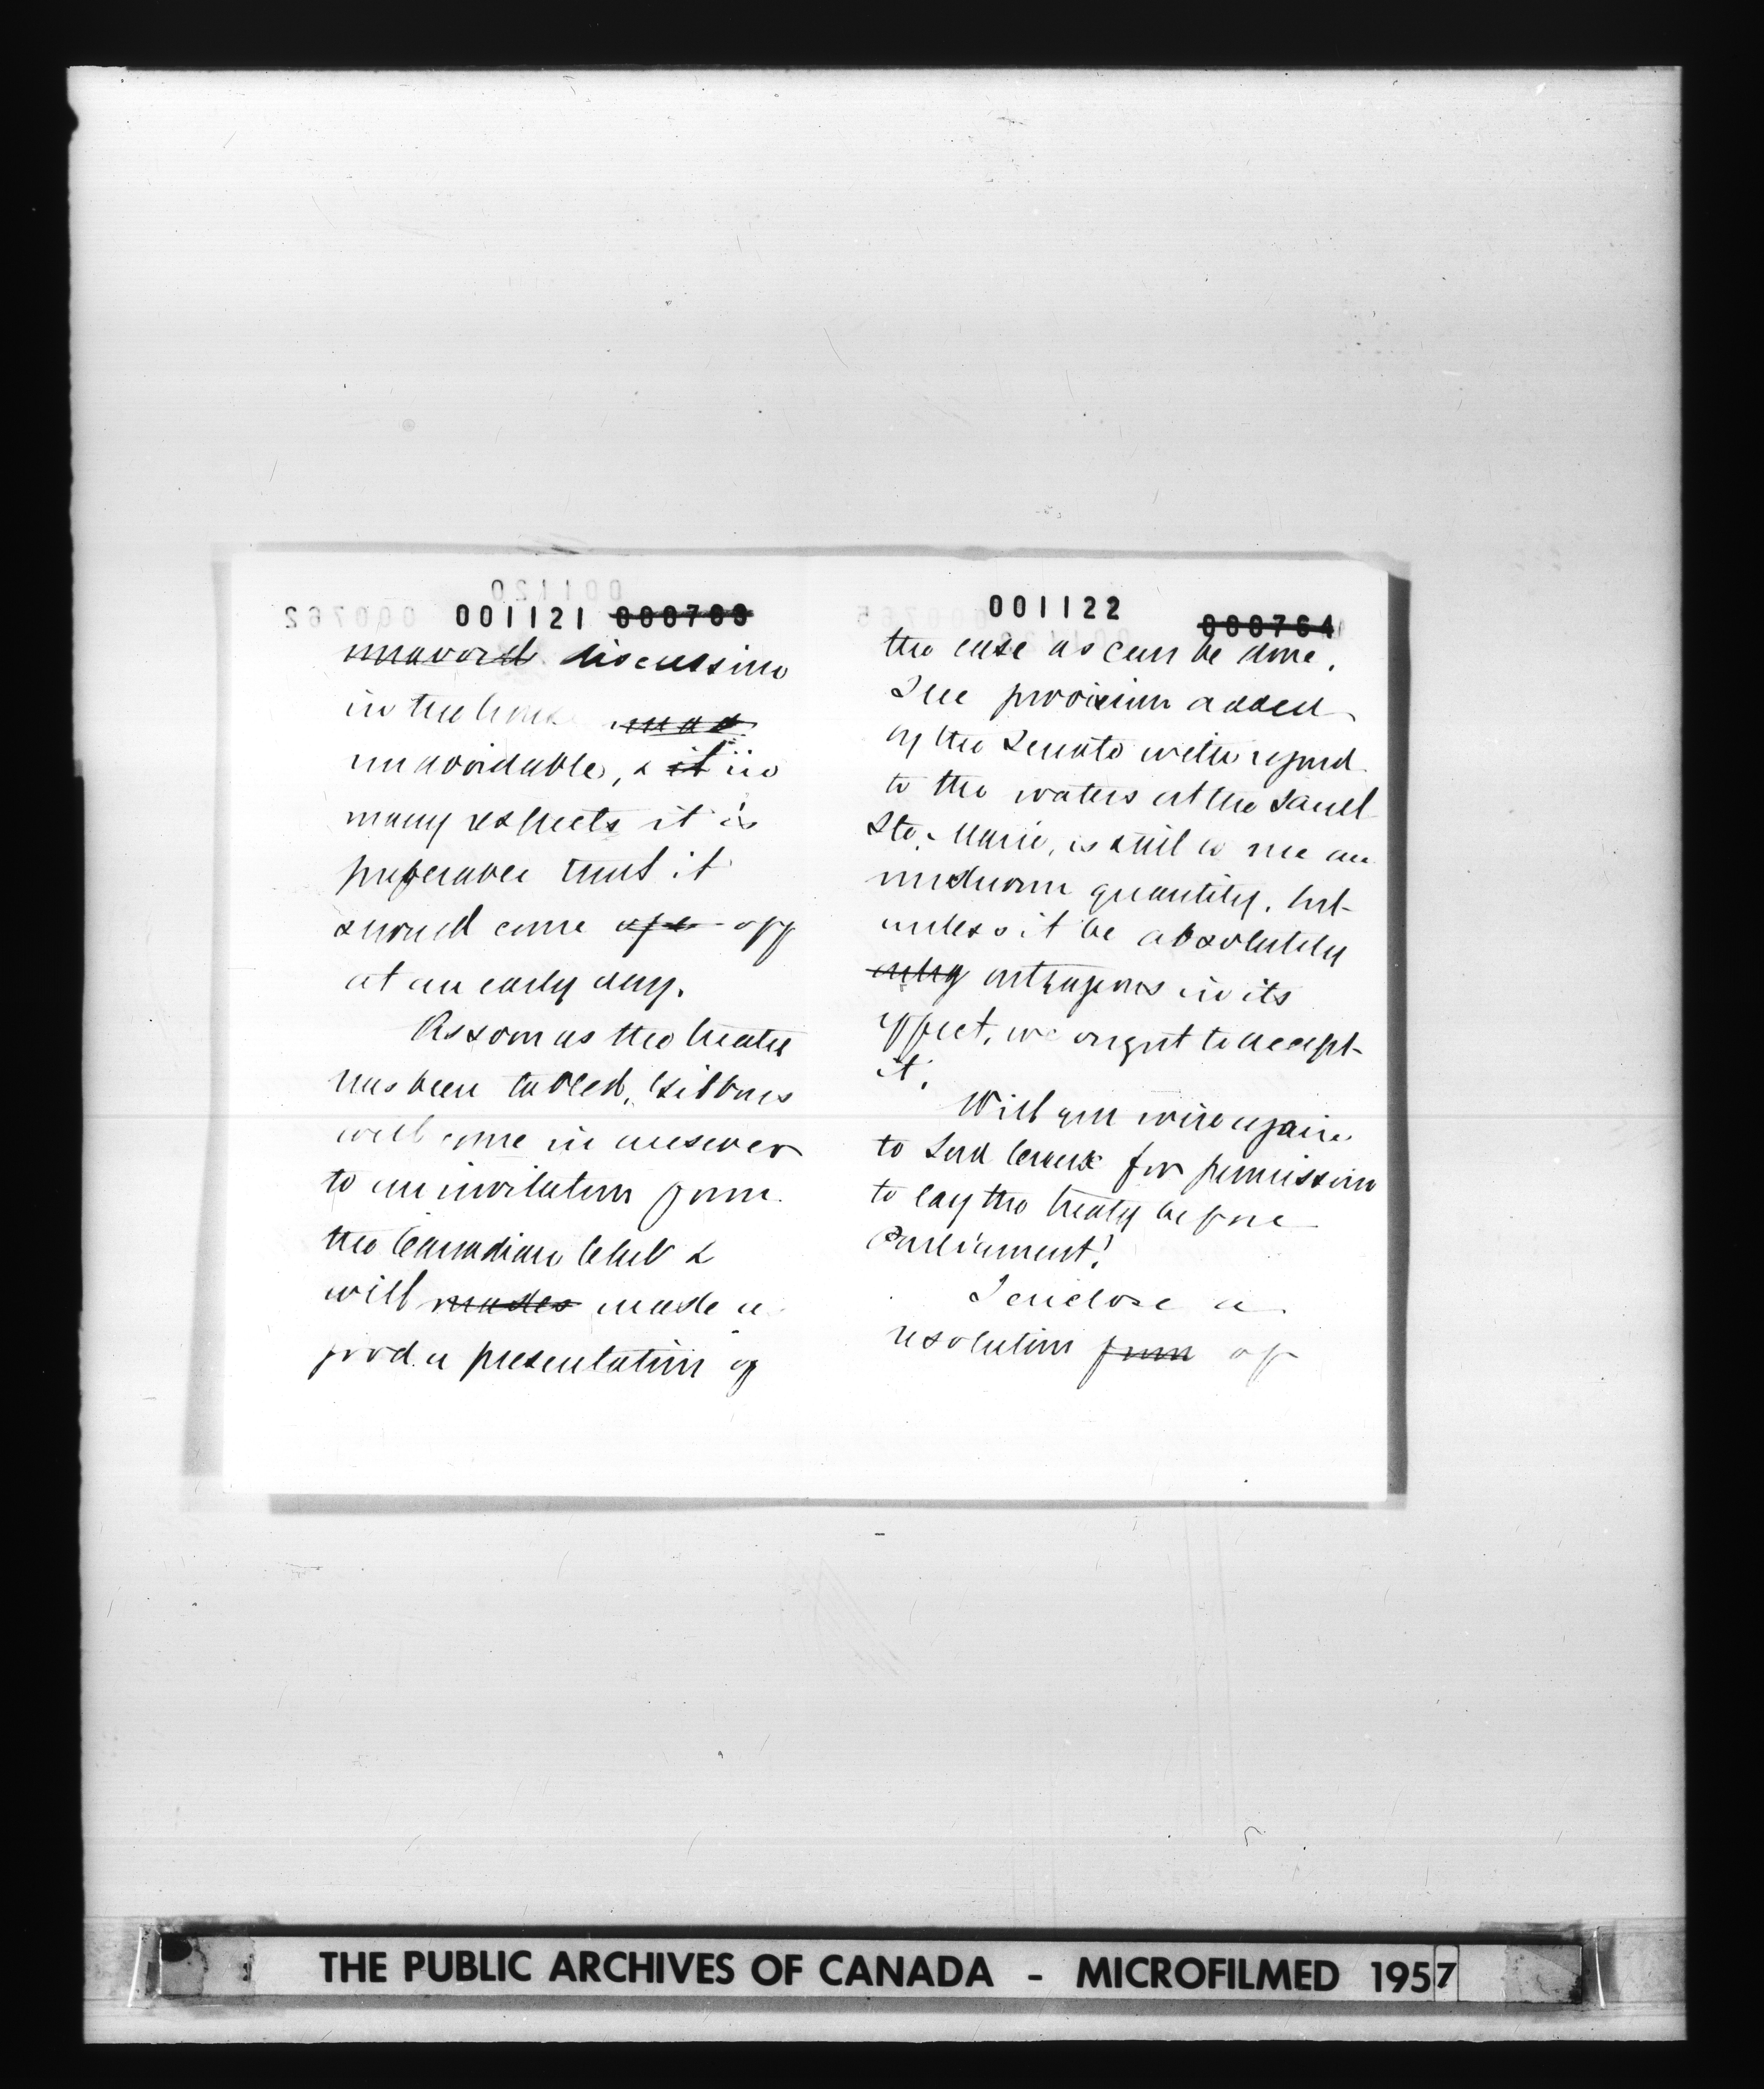 001121 000763
unavoid discussion
in the house was
unavoidable, & it in
many respects it is
preferable that it
should come ofe off
at an early day.
As soon as the treaty
has been tabled, Gibbons
will come in answer
to an invitation from
the Canadian Club &
will mades made a
good a presentation of
001122 000764
the case as can be done.
The provision added
by the Senate with regard
to the waters at the Sault
Ste. Marie, is still to me an
unknown quantity, but
unless it be absolutely
outrageous in its
effect, we ought to accept
it.
Will you wire again
to Lord Crewe for permission
to lay the treaty before
Parliament?
I enclose a
resolution from of
THE PUBLIC ARCHIVES OF CANADA - MICROFILMED 1957